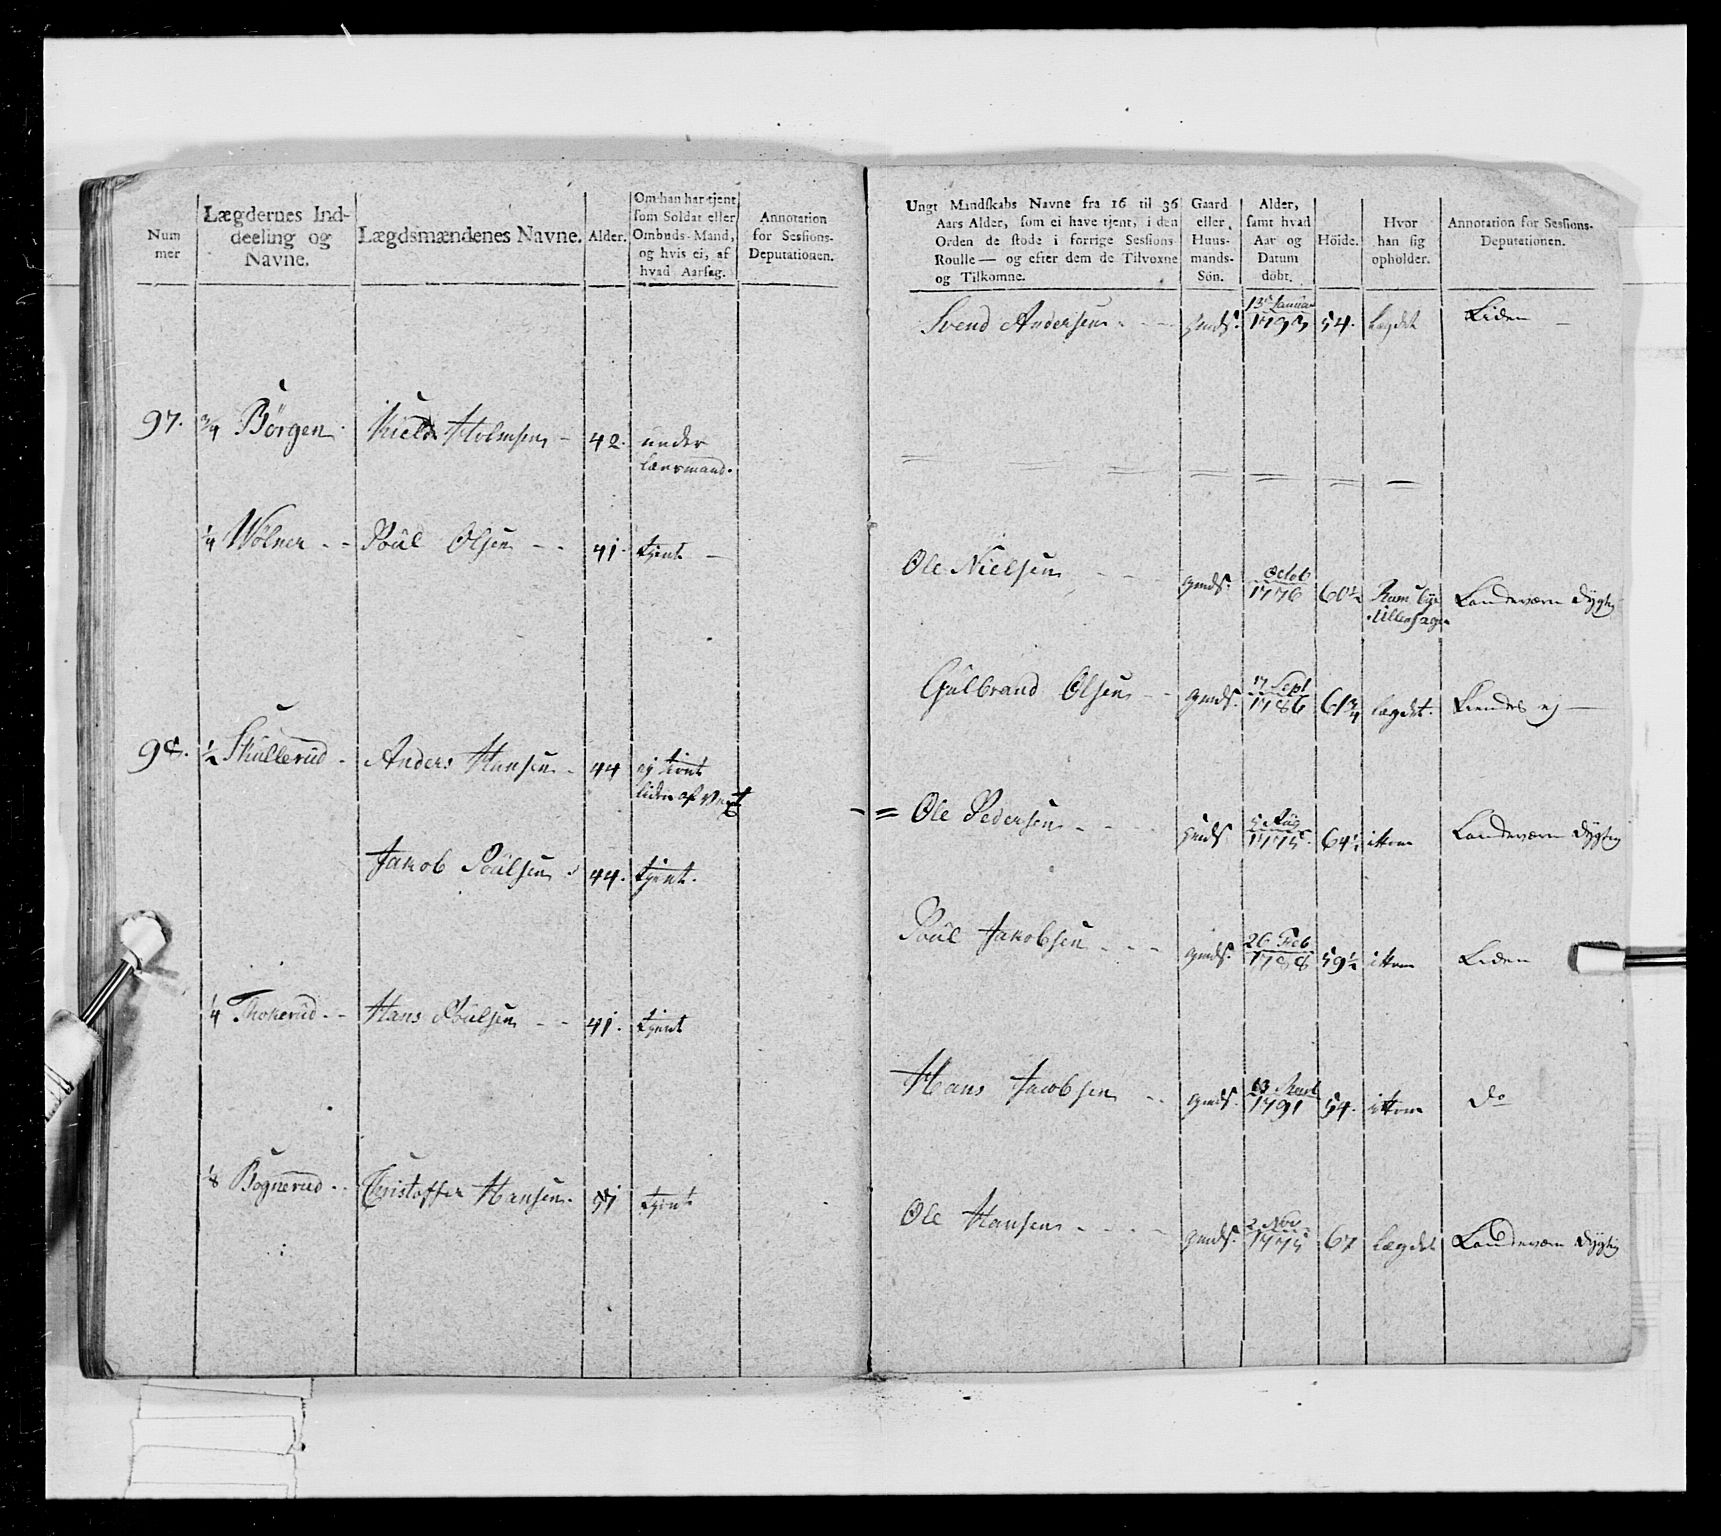 Num
mer
Lægdernes Ind-
deeling og
Navne.
Lægdsmændenes Navne.
Alder.
Om han har tjent
som Soldat eller
Ombuds-Mand,
og hvis ei, af
hvad Aarsag.
Annotation
for Sessions-
Deputationen.
97. 3/4 Börgen Kield Holmsen 42. under
Lænsmand.
1/4 Wölner Poül Olsen 41. tjent
98. 1/2 Skullerüd Anders Hansen 44 ej tient
liden af Vext
Jakob Poülsen 44. tjent.
1/4 Thokerüd Hans Poülsen 41. tjent
1/8 Bognerüd Christoffer Hansen. 51 tjent
Ungt Mandskabs Navne fra 16 til 36
Aars Alder, som ei have tjent, i den
Orden de stode i forrige Sessions
Roulle — og efter dem de Tilvoxne
og Tilkomne.
Gaard
eller
Huus-
mands-
Sön.
Alder,
samt hvad
Aar og
Datum
döbt.
Höide.
Hvor
han sig
opholder.
Annotation for Sessions-
Deputationen.
Svend Andersen hmds. 13 Januar 1793 54. Lægdet Liden
Ole Nielsen gmds. Octob 1776 60 1/2
Ullensager Landeværn dygtig
Gulbrand Olsen gmds. 17 Sept 1786 61 3/4 lægdet. Kiendes ej
Ole Pedersen hmds 5 Aüg 1775. 64 1/2 ittem Landeværn dygtig
Poül Jakobsen gmds. 26 Feb 1788 59 1/2 ittem Liden
Hans Jacobsen gmds. 13 1791 54. ittem do
Ole Hansen gmds. 2 Nov 1775 67 Lægdet Landeværn dygtig